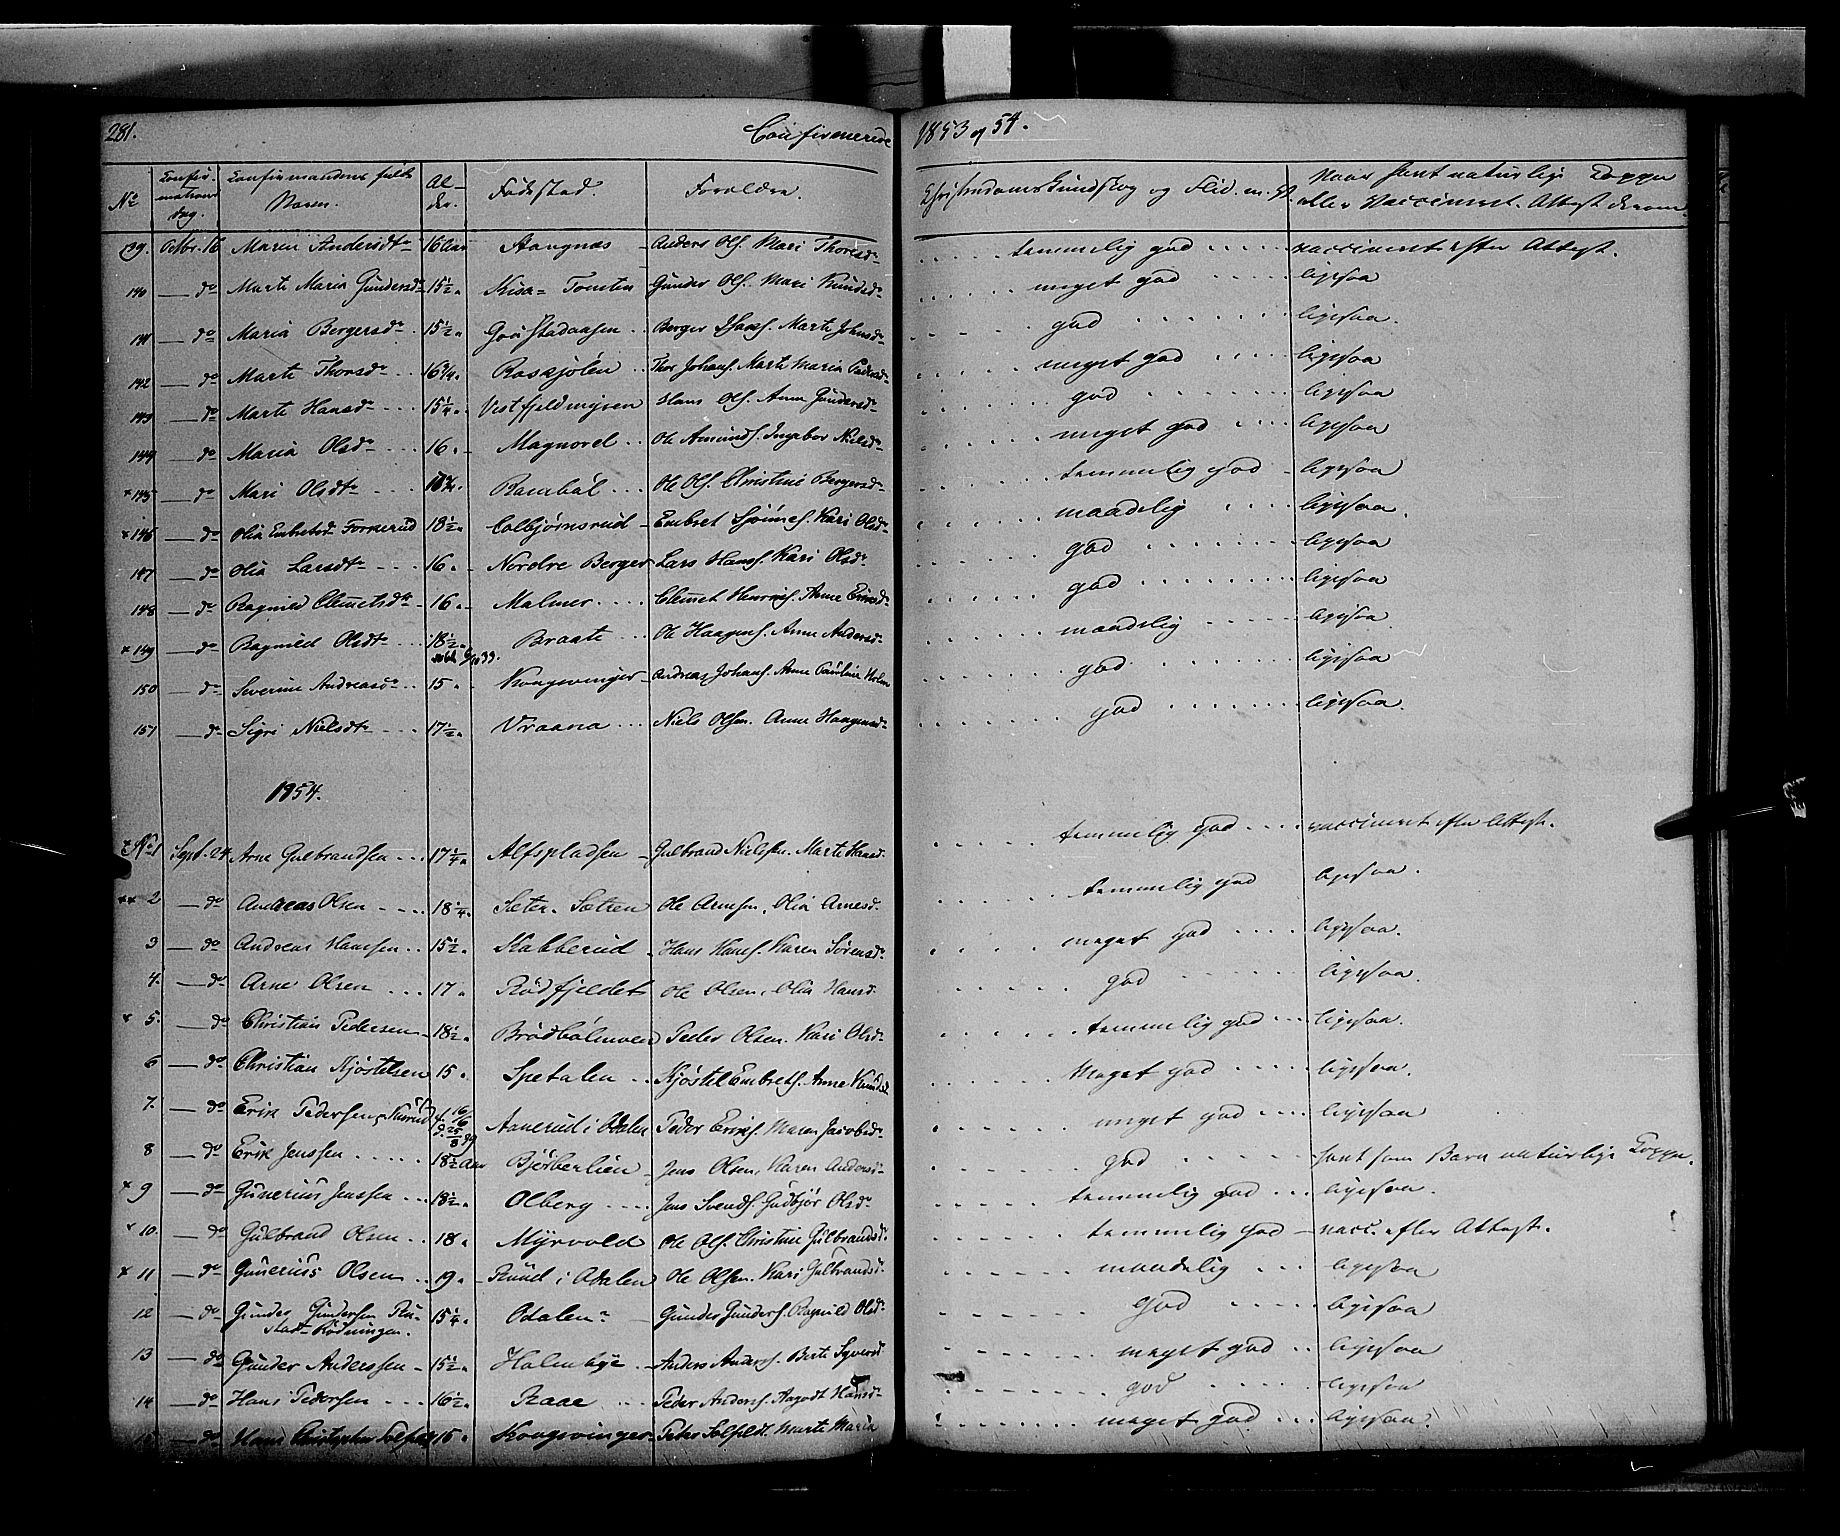 281. Confirmerede 1853 og 54.
No Confirmations dag. Confirmandens fulde Navn. Alder. Födestad. Foreldre. Christendoms Kundskab og Flid. m. v. Naar havt naturlige Kopper eller Vaccineret. Attest derom.
139. Octbr. 16 Maren Andersdtr 16 Aar Aangnæs Anders Ols. Mari Thoresdr temmelig god vaccineret efter Attest.
140 — do Marte Maria Gundersdr 15½ Kisa- Tomten Gunder Ols. Mari Knudsdr meget god ligesaa
141 — do Maria Bergersdr 15½ Berger Marte Johnsdr god ligesaa.
142 — do Marte Thorsdr 16¾ Raskjölen Thor Johans. Marte Maria Pedersdr meget god ligesaa
143 — do Marte Hansdr 15¼ Vestfjeldmyren Hans Ols. Anne Gundersdr god ligesaa
144 — do Maria Olsdr 16 Magnorel Ole Amunds. Ingebor Nielsdr meget god ligesaa
145 — do Mari Olsdtr Ole Ols. Christine Bergersdr temmelig god ligesaa
146 — do Olia Embretsdr Fornerud 18½ Colbjørnsrud Embret Kari Olsdr maadelig ligesaa.
147 — do Olia Larsdtr 16 Nordre Berger Lars Hanss. Kari Olsdr god ligesaa
148 — do Ragnild Clemetsdtr 16 Malmer Clemet Henriks. Anne god ligesaa
149 — do Ragnild Olsdtr 18½ Braate Ole Haagens. Anne Andersdr maadelig ligesaa.
150 — do Severine Andreasdr 15 Kongsvinger Andreas Johans. Anne Pauline Holm god ligesaa
151 — do Sigri Nielsdtr 17½ Vraana Niels Olsen. Anne Haagensdr god ligesaa.
1854.
No 1 Sept. 24 Arne Gulbrandsen 17¼ Alfspladsen Gulbrand Nielsen. Marte Hansd. temmelig god vaccineret efter Attest.
2 — do Andreas Olsen 18¼ Sæter- Sætren Ole Arnesen, Olia Arnesd. temmelig god ligesaa.
3 — do Andreas Hanssen 15½ Kabberud Hans Hans. Karen Sörensdr meget god ligesaa.
4. — do Arne Olsen 17 Rödfjeldet Ole Olsen, Olia Hansd. god ligesaa.
5. — do Christian Pedersen 18½ Brödbölmoen Peder Olsen. Kari Olsdr temmelig god ligesaa.
6 — do Christian Kjöstelsen 15 Spetalen Kjöstel Embrets. Anne Knudsd. Meget god ligesaa.
7. — do Erik Pedersen Aanerud i Odalen Peder Eriks. Maren Jacobsdr meget god ligesaa
8 — do Erik Jenssen 18½ Aar Bjørberlien Jens Olsen, Karen Andersd. god havt som Barn naturlige Kopper.
9 — do Gunerius Jenssen 18½ Olberg Jens Svends. Gudbjör Olsdr temmelig god ligesaa.
10. — do Gulbrand Olsen 18 Myrvold Ole Ols. Christine Gulbrandsdr temmelig god vacc. efter Attest.
11 — do Gunerius Olsen 19 Ruud i Odalen Ole Olsen. Kari Gulbrandsd. maadelig ligesaa
12 — do Gunder Gundersen Rustad- Rödningen. 15¼ Odalen Gunder Gunders. Ragnild Olsdr god ligesaa
13 — do Gunder Anderssen 15½ Holmbye Anders Anders. Berte Syversd. meget god ligesaa
14 — do Hans Pedersen 16½ Raae Peder Anders. Aagodt Hansdr god ligesaa
15 — do Hans Christopher Solfeldt 15 Kongsvinger Peter Solfeldt Marte Maria meget god ligesaa.